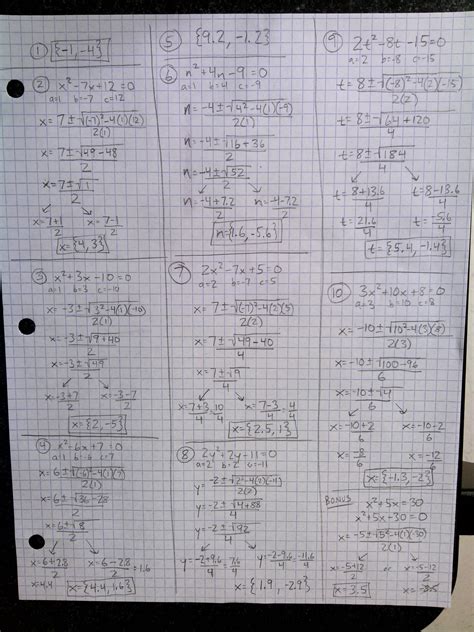 ① {-1, -4}
② x²-7x+12=0
a=1 b=-7 c=12
x= 7±√(-7)²-4(1)(12)
2(1)
x= 7±√49-48
2
x= 7±√1
2
x= 7+1 x= 7-1
2 2
x={4, 3}
③ x²+3x-10=0
a=1 b=3 c=-10
x= -3±√3²-4(1)(-10)
2(1)
x= -3±√9+40
2
x= -3±√49
2
x= -3+7 x= -3-7
2 2
x={2, -5}
④ x²-6x+7=0
a=1 b=-6 c=7
x= 6±√(-6)²-4(1)(7)
2(1)
x= 6±√36-28
2
x= 6±√8
2
x= 6+2.8 x= 6-2.8 = 1.6
2 2
x=4.4 x={4.4, 1.6}
⑤ {9.2, -1.2}
⑥ n²+4n-9=0
a=1 b=4 c=-9
n= -4±√4²-4(1)(-9)
2(1)
n= -4±√16+36
2
n= -4±√52
2
n= -4+7.2 n= -4-7.2
2 2
n={1.6, -5.6}
⑦ 2x²-7x+5=0
a=2 b=-7 c=5
x= 7±√(-7)²-4(2)(5)
2(2)
x= 7±√49-40
4
x= 7±√9
4
x= 7+3 = 10 x= 7-3 = 4
4 4 4 4
x={2.5, 1}
⑧ 2y²+2y-11=0
a=2 b=2 c=-11
y= -2±√2²-4(2)(-11)
2(2)
y= -2±√4+88
4
y= -2±√92
4
y= -2+9.6 = 7.6 y= -2-9.6 = -11.6
4 4 4 4
x={1.9, -2.9}
⑨ 2t²-8t-15=0
a=2 b=-8 c=-15
t= 8±√(-8)²-4(2)(-15)
2(2)
t= 8±√64+120
4
t= 8±√184
4
t= 8+13.6 t= 8-13.6
4 4
t= 21.6 t= -5.6
4 4
t={5.4, -1.4}
⑩ 3x²+10x+8=0
a=3 b=10 c=8
x= -10±√10²-4(3)(8)
2(3)
x= -10±√100-96
6
x= -10±√4
6
x= -10+2 x= -10-2
6 6
x= -8 x= -12
6 6
x={-1.3, -2}
BONUS x²+5x=30
x²+5x-30=0
x= -5±√5²-4(1)(-30)
2(1)
x= -5+12 or x= -5-12
2 2
x=3.5 x=-8.5